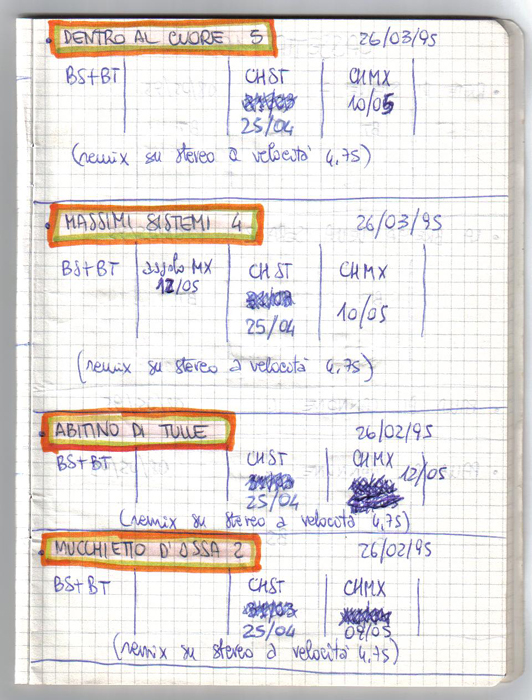 DENTRO AL CUORE 5 26/03/95
BS+BT CHST CHMX
10/05
25/04
(remix su stereo a velocità 4,75)
MASSIMI SISTEMI 4 26/03/95
BS+BT assolo MX CHST CHMX
12/05
10/05
25/04
(remix su stereo a velocità 4,75)
ABITINO DI TULLE 26/02/95
BS+BT CHST CHMX
12/05
25/04
(remix su stereo a velocità 4,75)
MUCCHIETTO D'OSSA 2 26/02/95
BS+BT CHST CHMX
25/04 09/05
(remix su stereo a velocità 4,75)